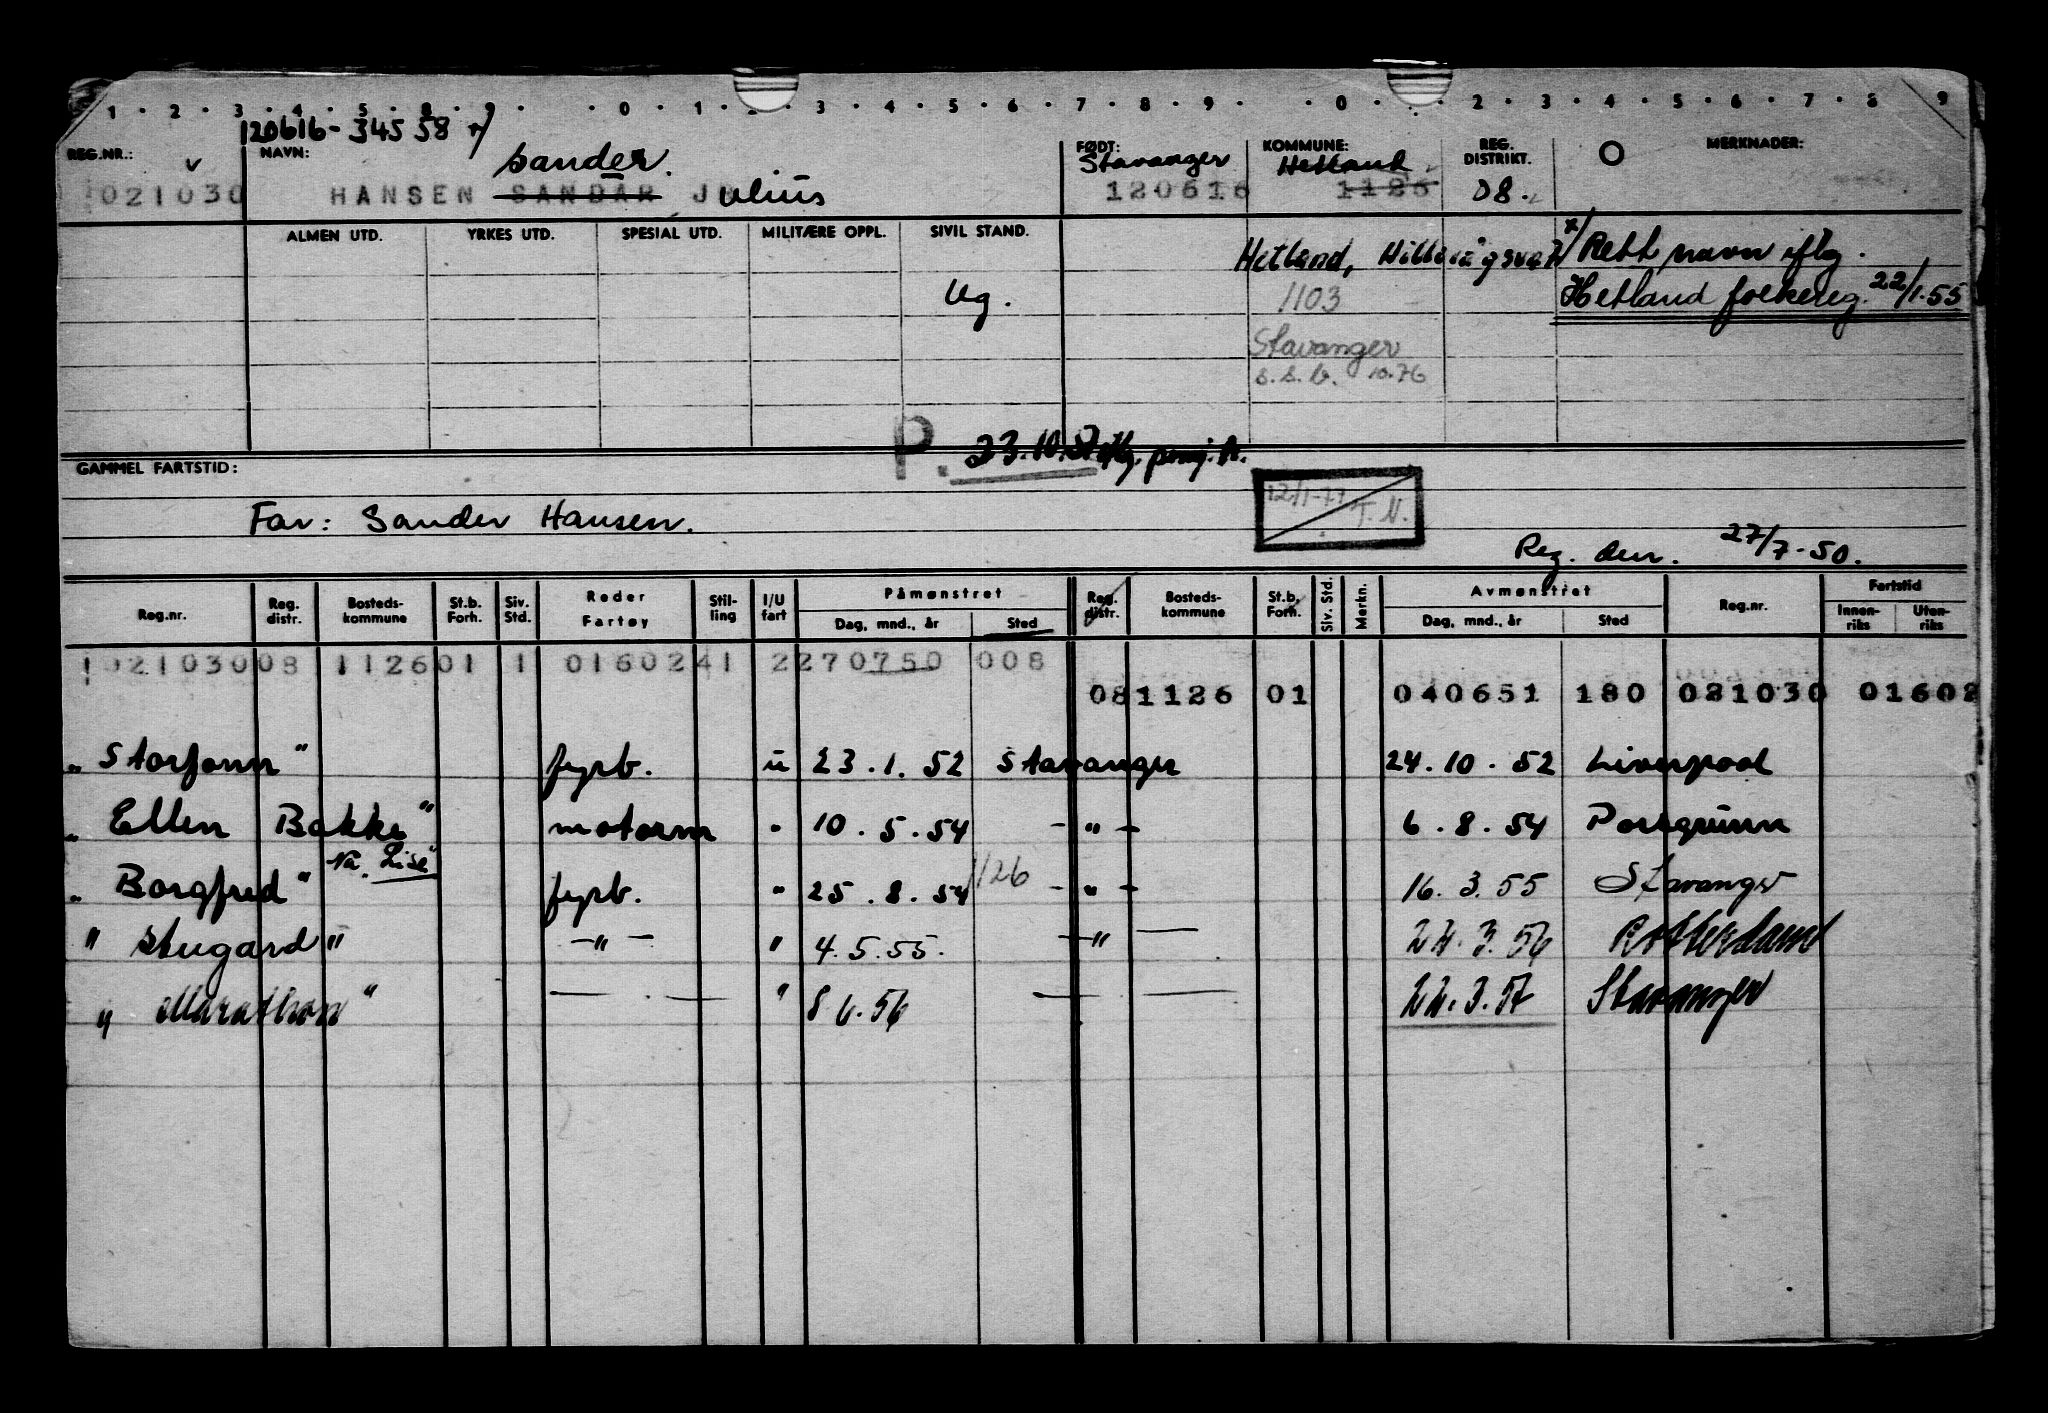 1 · 2 · 3 · 4 · 5 · 8 · 9 · · 0 · 1 · · 3 · 4 · 5 · 6 · 7 · 8 · 9 · · 0 · · 2 · 3 · 4 · 5 · 6 · 7 · 8 · 9
120616-34558 x/
REG.NR.: NAVN: FØDT: KOMMUNE: REG. DISTRIKT. MERKNADER:
v Sander. Stavanger Hetland O
021030 HANSEN SANDAR Julius 120616 1126 08.
ALMEN UTD. YRKES UTD. SPESIAL UTD. MILITÆRE OPPL. SIVIL STAND.
Hetland, Hillevågsvn x/ Rett navn iflg.
Ug. 1103 Hetland folkereg. 22/1.55
Stavanger
s.s.b. 10.76
P. 23.10.
GAMMEL FARTSTID:
12/1-77 T.N.
Far: Sander Hansen.
Reg. den. 27/7-50.
Reg.nr. Reg. distr. Bosteds-kommune St.b. Forh. Siv. Std. Reder Fartøy Stil-ling I/U fart Påmønstret Dag, mnd., år Sted Reg. distr. Bosteds-kommune St.b. Forh. Siv. Std. Merkn. Avmønstret Dag, mnd., år Sted Reg.nr. Fartstid Innen-riks Uten-riks
02103008 112601 1 0160241 2270750 008
081126 01 040651 180 021030 01602
"Storfonn" fyrb. u 23.1.52 Stavanger 24.10.52 Liverpool
"Ellen Bakke" motorm " 10.5.54 -"- 6.8.54 Porsgrunn
Nå "Lise"
"Borgfred" fyrb. " 25.8.54 1126 -"- 16.3.55 Stavanger
"Stugard" -"- " 4.5.55. -"- 24.3.56 Rotterdam
"Marathon" — — " 8.6.56 — — 22.3.57 Stavanger